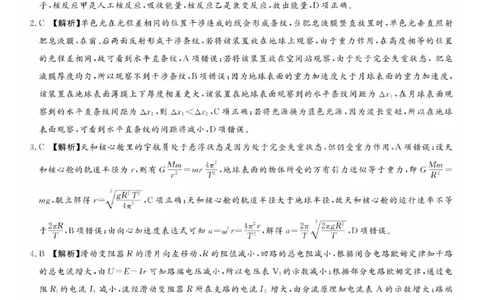 子,核反应甲是人工核反应,吸收能量,核反应乙是衰变反应,放出能量,D项正确。
2.C 【解析】单色光在光程差相同的位置干涉造成的线会形成条纹,当肥皂液膜竖直放置时,单色光垂直照射
肥皂液膜,在前、后两面反射形成干涉条纹,若将该装置放在地球上观察,由于重力作用,在高度相等的位置
的光程差相同,故可看到水平直条纹,A项错误;若将该装置放在空间站观察,由于处于完全失重状态,肥皂
液膜厚度均匀,所以观察不到干涉条纹,B项错误;因为地球表面的重力加速度大于月球表面的重力加速度,
该装置在地球表面薄膜上下厚度相差更大,该装置在地球表面观察到的水平条纹间距为 Δx₁,在月球表面观
察到的水平直条纹间距为 Δx₂,则 Δx₁<Δx₂,C项正确;若将光源换为蓝色光源,因为波长变短,所以在地球
表面观察,可看到水平直条纹的间距将减小,D项错误。
3.C 【解析】天和核心舱里的宇航员处于悬浮状态是因为处于完全失重状态,但仍受重力作用,A项错误;设天
和核心舱的轨道半径为 r,则有 G Mm/r² = mr 4π²/T²,地球表面的物体所受的万有引力近似等于重力,即 G Mm/R² =
mg,联立解得 r=∛(gR²T²/4π²),C项正确;天和核心舱的轨道半径大于地球半径,故天和核心舱的运行速率不等
于 2πR/T,B项错误;由向心加速度表达式可知 a=ω²r=4π²r/T²,解得 a=2π/T ∛(2πgR²/T),D项错误。
4.B 【解析】滑动变阻器 R 的滑片向左移动,R 的阻值减小,回路的总电阻减小,根据闭合电路欧姆定律知干路
的总电流增大,由 U=E-Ir 可知路端电压减小,所以电压表 V₁ 的示数减小;根据部分电路欧姆定律,通过电
阻 R₁ 的电流 I₁ 减小,流经滑动变阻器 R 所在支路的电流 I₂ 增大,由分流原理知电流表 A 的示数增大;路端